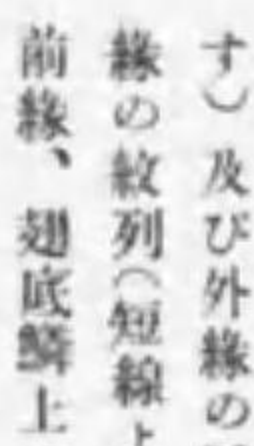 す）及び外緣の
緣の紋列（短線よ
前緣、翅底鱗上